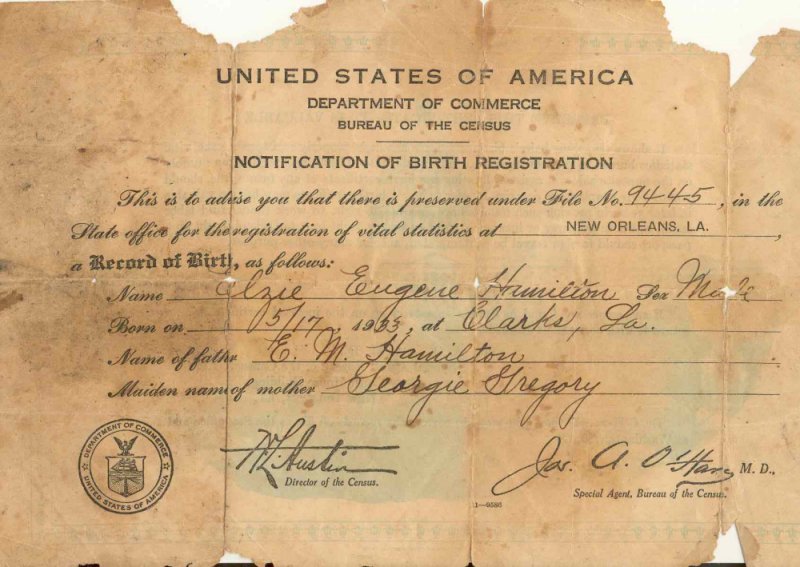 UNITED STATES OF AMERICA
DEPARTMENT OF COMMERCE
BUREAU OF THE CENSUS
NOTIFICATION OF BIRTH REGISTRATION
This is to advise you that there is preserved under File No. 9445, in the
State office for the registration of vital statistics at NEW ORLEANS, LA.,
a Record of Birth, as follows:
Name Elzie Eugene Hamilton Sex Male
Born on 5/17, 1933, at Clarks, La.
Name of father E. M. Hamilton
Maiden name of mother Georgie Gregory
DEPARTMENT OF COMMERCE
UNITED STATES OF AMERICA
W L Austin
Director of the Census.
Jos. A. O'Hara M. D.,
Special Agent, Bureau of the Census.